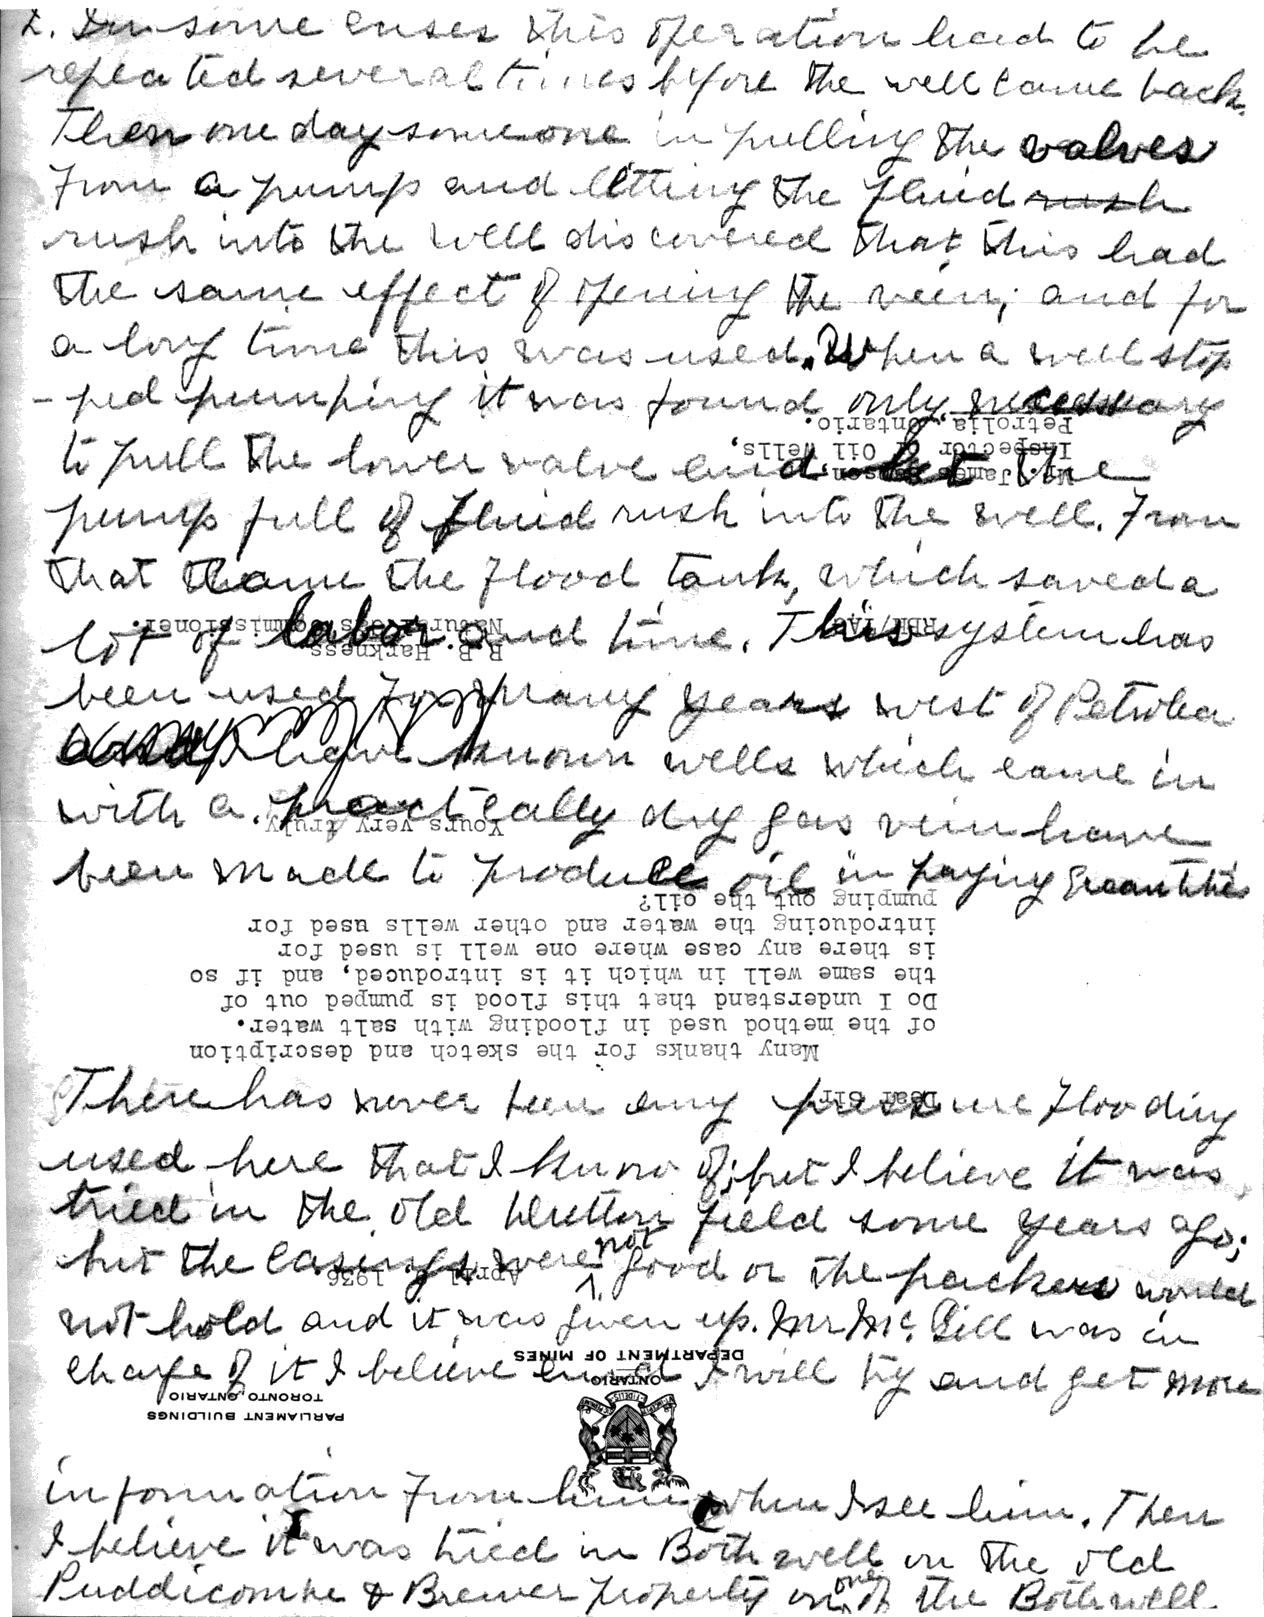 2. In some cases this operation had to be
repeated several times before the well came back.
Then one day someone in pulling the valves
from a pump and letting the fluid rush
rush into the well discovered that this had
the same effect of opening the vein; and for
a long time this was used. When a well stop
-ped pumping it was found only necessary
to pull the lower valve and let the
pump full of fluid rush into the well. From
that came the flood tank, which saved a
lot of labor and time. This system has
been used for many years west of Petrolia
have known wells which came in
with a practically dry gas vein have
been made to produce oil in paying quantities
There has never been any pressure flooding
used here that I know of; but I believe it was
tried in the old Dutton field some years ago;
but the casings were not good or the packers would
not hold and it was given up. Mr Mc. Gill was in
charge of it I believe and I will try and get more
information from him when I see him. Then
I believe it was tried in Bothwell on the old
Puddicombe & Brewer property on one of the Bothwell
ONTARIO
DEPARTMENT OF MINES
PARLIAMENT BUILDINGS
TORONTO, ONTARIO
April 1936
Dear Sir:
Many thanks for the sketch and description
of the method used in flooding with salt water.
Do I understand that this flood is pumped out of
the same well in which it is introduced, and if so
is there any case where one well is used for
introducing the water and other wells used for
pumping out the oil?
Yours very truly
R.B. Harkness
Natural Gas Commissioner.
RBH/IAG
Mr. James
Inspector of Oil Wells,
Petrolia, Ontario.